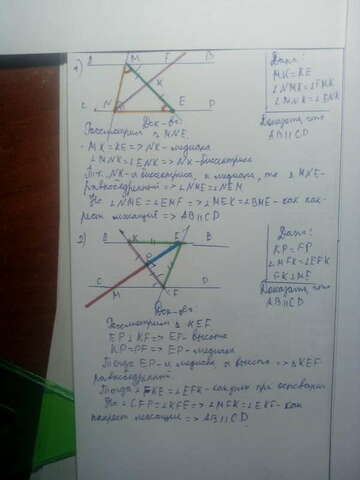 1)
A M F B
Дано:
MK=KE
∠NMK=∠EMK
∠MNK=∠ENK
K
C N E D
Доказать, что
AB||CD
Док-во:
Рассмотрим △ MNE.
MK=KE => NK - медиана
∠MNK=∠ENK => NK - биссектриса
Т.к. NK - и биссектриса, и медиана, то △ MNE -
равнобедренный => ∠NME=∠NEM.
Но ∠NME=∠EMF => ∠MEK=∠BME - как нак-
рест лежащие => AB||CD
2)
A K E B
Дано:
KP=FP
∠MFK=∠EFK
P
C M F D
Доказать, что
AB||CD
Док-во:
Рассмотрим △ KEF.
EP⊥KF => EP - высота
KP=PF => EP - медиана
Тогда EP - и медиана, и высота => △KEF -
равнобедренный.
Тогда ∠FKE=∠EFK - как углы при основании
=> ∠MFK=∠EKF - как
накрест лежащие => AB||CD